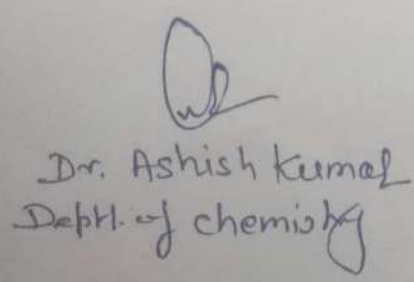 Dr. Ashish Kumar
Deptt. of chemistry